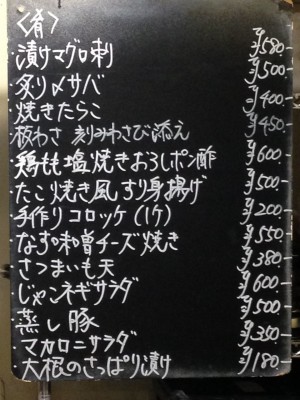 〈肴〉
漬けマグロ刺 ¥580.
炙り〆サバ ¥500.
焼きたらこ ¥400.
板わさ 刻みわさび添え ¥450.
・鶏もも塩焼きおろしポン酢 ¥600.
・たこ焼き風すり身揚げ ¥500.
・手作りコロッケ(1ケ) ¥200.
・なすの味噌チーズ焼き ¥550.
・さつまいも天 ¥380.
・じゃこネギサラダ ¥600.
・蒸し豚 ¥500.
・マカロニサラダ ¥350.
・大根のさっぱり漬け ¥180.